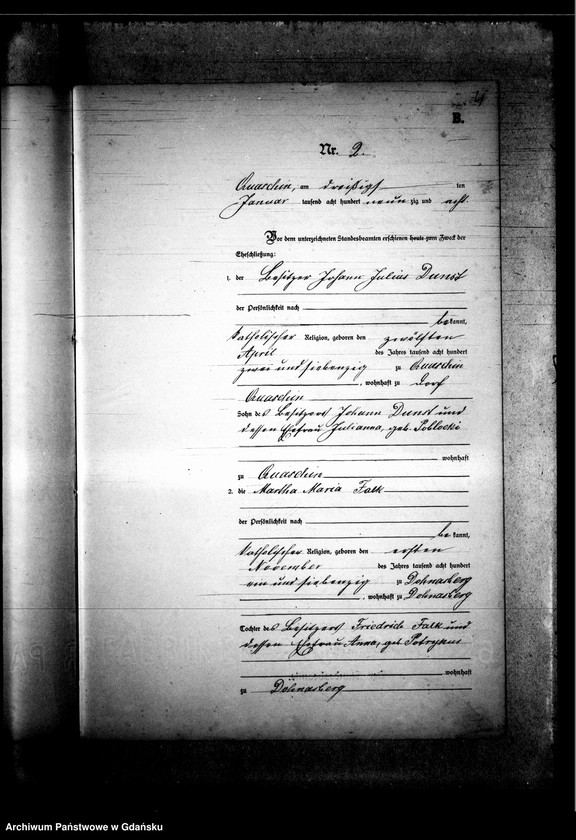 B.
Nr. 2.
Quaschin, am dreißigst ten
Januar tausend acht hundert neun zig und acht.
Vor dem unterzeichneten Standesbeamten erschienen heute zum Zweck der
Eheschließung:
1. der Besitzer Johann Julius Dunst
der Persönlichkeit nach
bekannt,
katholischer Religion, geboren den zwölften
April des Jahres tausend acht hundert
zwei und siebenzig zu Quaschin
, wohnhaft zu Dorf
Quaschin
Sohn des Besitzers Johann Dunst und
dessen Ehefrau Julianna, geb. Poblocki
wohnhaft
zu Quaschin
2. die Martha Maria Falk
der Persönlichkeit nach
bekannt,
katholischer Religion, geboren den ersten
November des Jahres tausend acht hundert
ein und siebenzig zu Dohnasberg
, wohnhaft zu Dohnasberg
Tochter des Besitzers Friedrich Falk und
dessen Ehefrau Anna, geb. Potrykus
wohnhaft
zu Dohnasberg
Archiwum Państwowe w Gdańsku